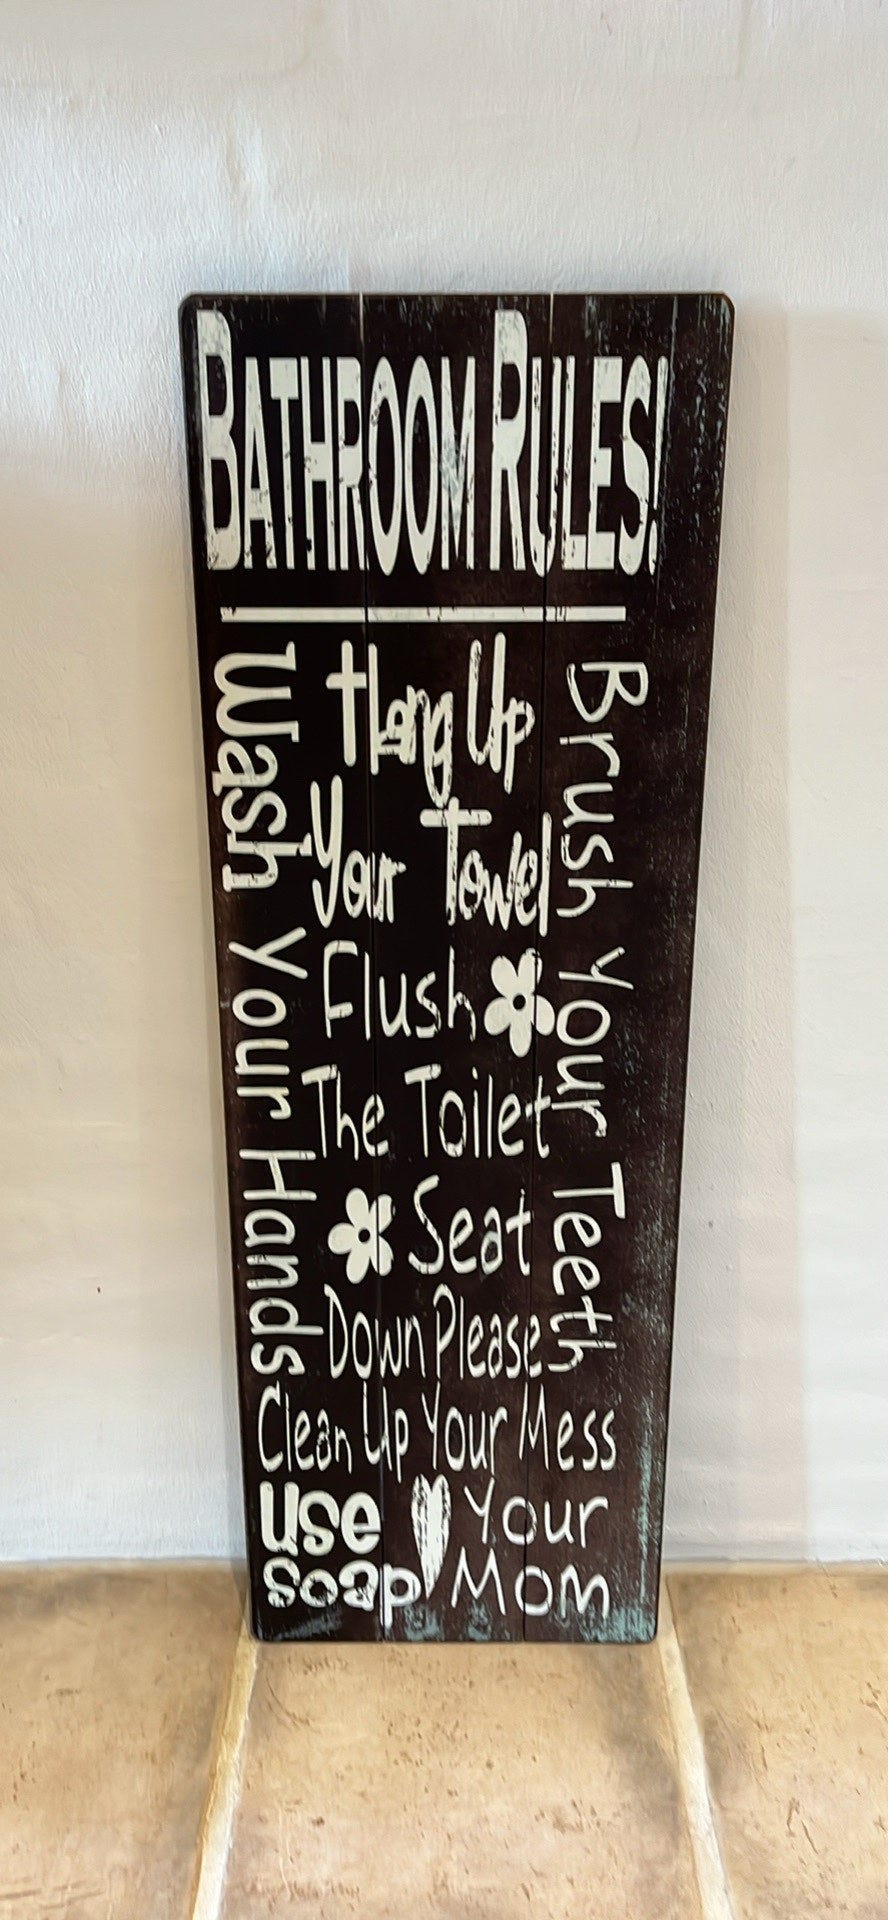 BATHROOM RULES!
Wash Your Hands
Hang Up
Your Towel
Flush
The Toilet
Seat
Down Please
Brush Your Teeth
Clean Up Your Mess
use
soap
Your
Mom